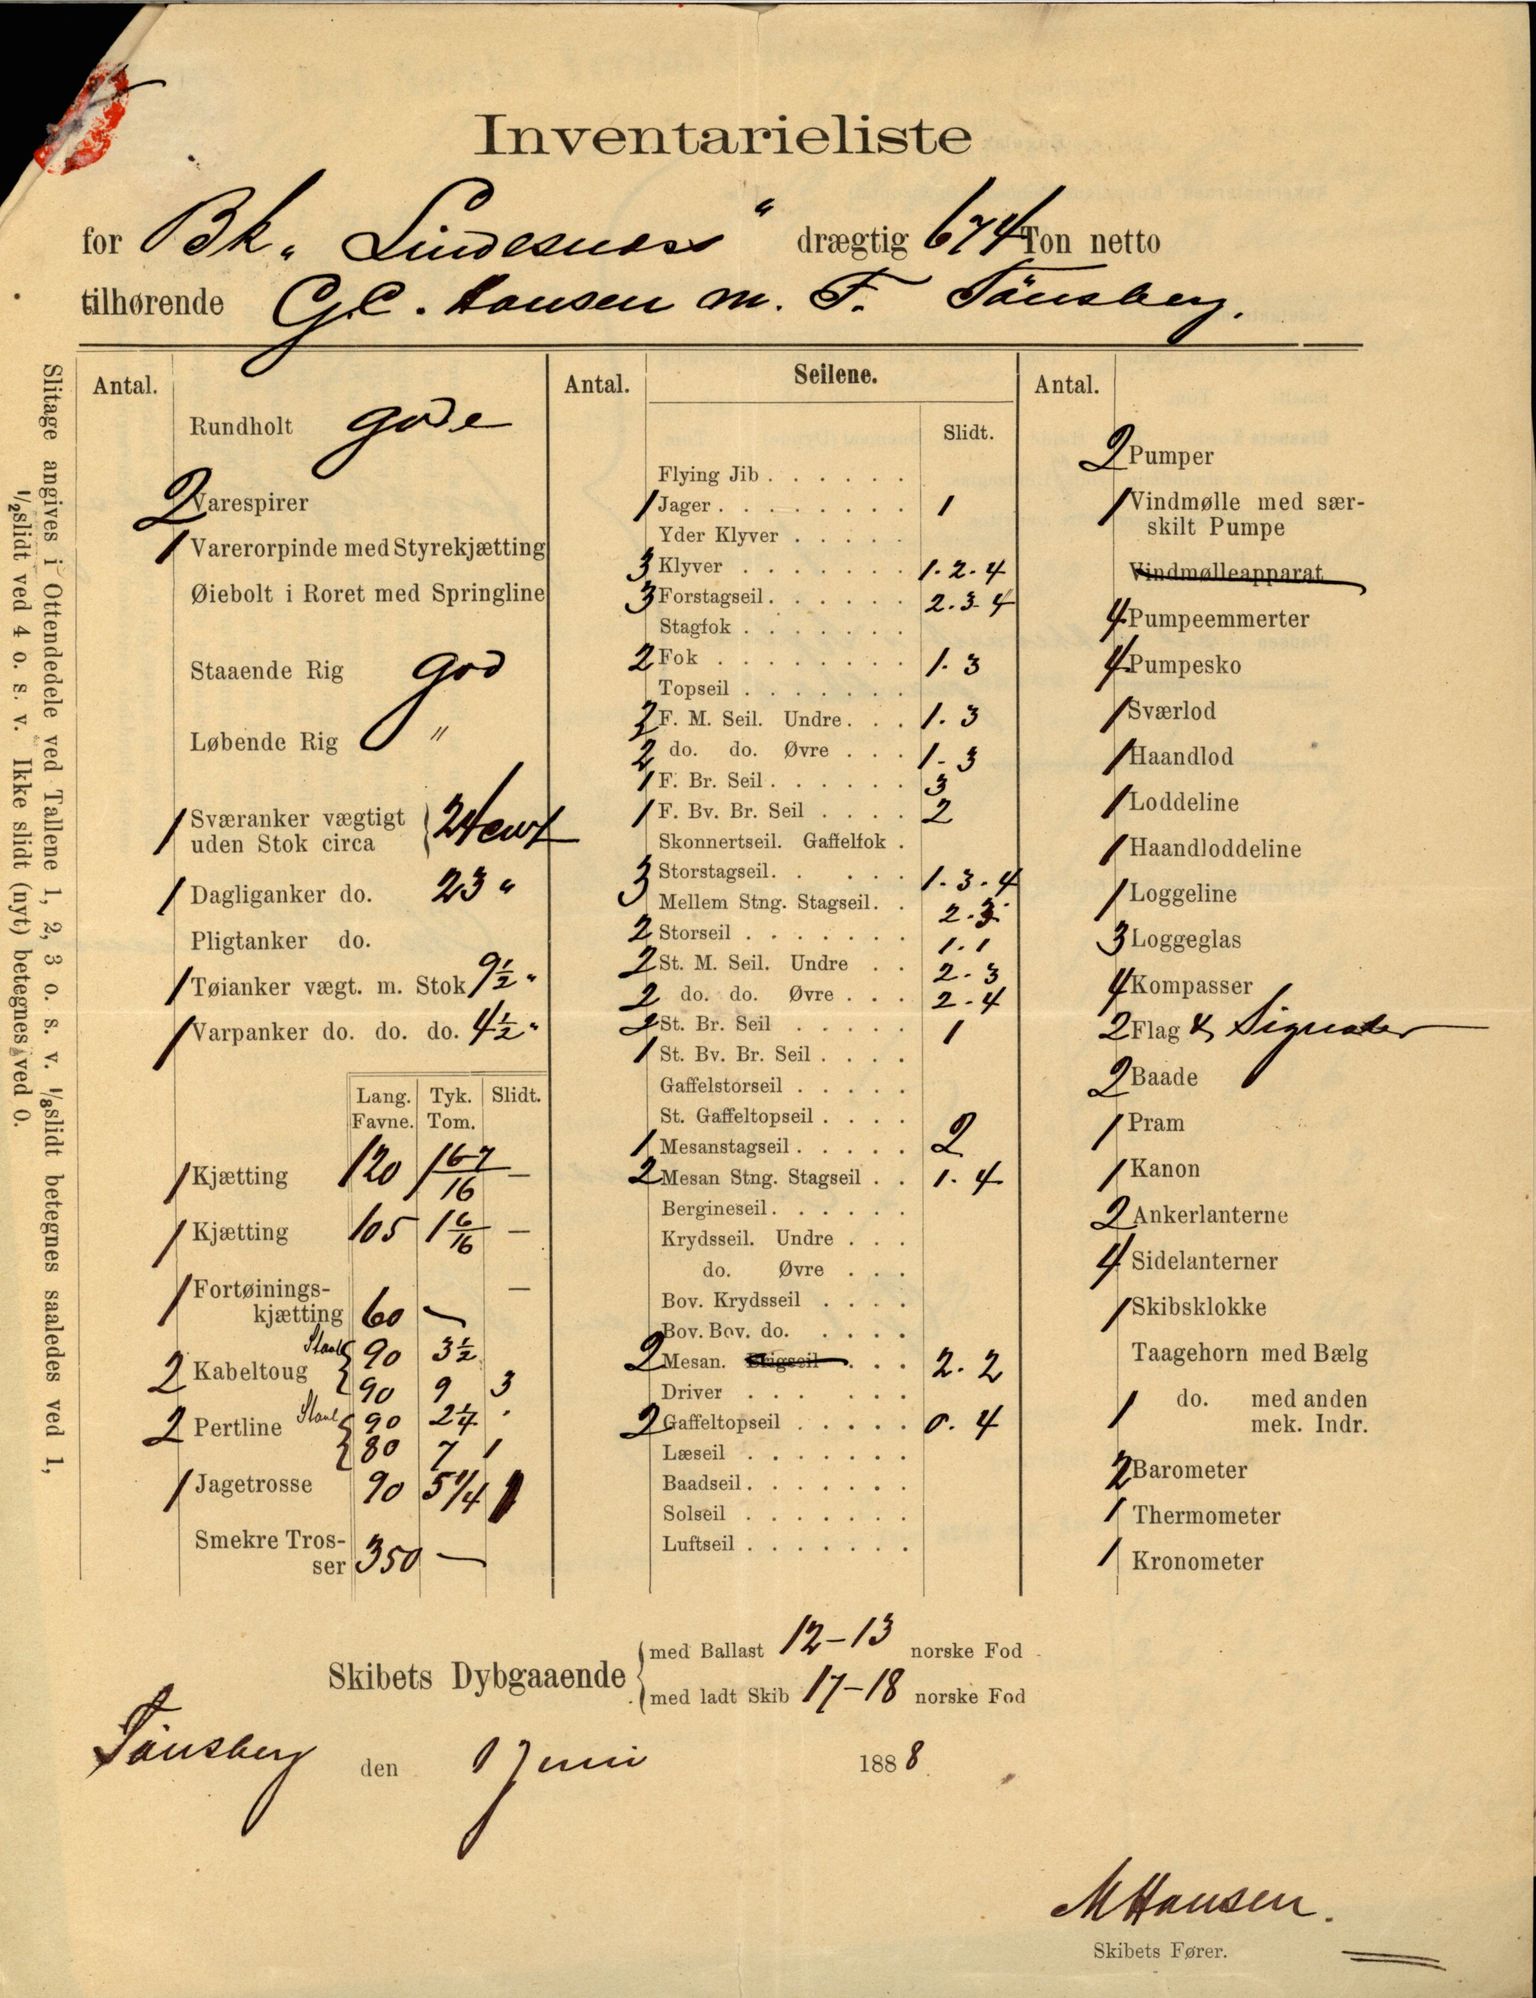 Inventarieliste
for Bk „Lindesnæs“ drægtig 674 Ton netto
tilhørende G.C. Hansen m. F. Tönsberg.
Slitage angives i Ottendedele ved Tallene 1, 2, 3 o. s. v. 1/8 slidt betegnes saaledes ved 1,
1/2 slidt ved 4 o. s. v. Ikke slidt (nyt) betegnes ved 0.
Antal.
Rundholt gode
2 Varespirer
1 Varerorpinde med Styrekjætting
Øiebolt i Roret med Springline
Staaende Rig god
Løbende Rig "
1 Sværanker vægtigt
uden Stok circa 24 cwt
1 Dagliganker do. 23 "
Pligtanker do.
1 Tøianker vægt. m. Stok 9 1/2 "
1 Varpanker do. do. do. 4 1/2 "
Lang. Tyk. Slidt.
Favne. Tom.
1 Kjætting 120 1 6-7/16 —
1 Kjætting 105 1 6/16 —
1 Fortøinings- —
kjætting 60 —
2 Kabeltoug Staal 90 3 1/2
90 9 3
2 Pertline Staal 90 2 1/4 "
80 7 1
1 Jagetrosse 90 5 1/4 1
Smekre Tros-
ser 350 —
Antal. Seilene.
Slidt.
Flying Jib . . . . . .
1 Jager . . . . . . . . 1
Yder Klyver . . . . .
3 Klyver . . . . . . . 1. 2. 4
3 Forstagseil . . . . . . 2. 3. 4
Stagfok . . . . . . .
2 Fok . . . . . . . . 1. 3
Topseil . . . . . . .
2 F. M. Seil. Undre . . . 1. 3
2 do. do. Øvre . . . 1. 3
1 F. Br. Seil . . . . . . 3
1 F. Bv. Br. Seil . . . . 2
Skonnertseil. Gaffelfok .
3 Storstagseil. . . . . 1. 3. 4
Mellem Stng. Stagseil. . 2. 3
2 Storseil . . . . . . . 1. 1
2 St. M. Seil. Undre . . 2. 3
2 do. do. Øvre . . . 2. 4
2 St. Br. Seil . . . . . 1
1 St. Bv. Br. Seil . . . .
Gaffelstorseil . . . . .
St. Gaffeltopseil . . . .
1 Mesanstagseil . . . . . 2
2 Mesan Stng. Stagseil . . 1. 4
Bergineseil . . . . . .
Krydsseil. Undre . . .
do. Øvre . . .
Bov. Krydsseil . . . .
Bov. Bov. do. . . . .
2 Mesan. Brigseil . . . 2. 2
Driver . . . . . .
2 Gaffeltopseil . . . . . 0. 4
Læseil . . . . . . .
Baadseil . . . . . . .
Solseil . . . . . . .
Luftseil . . . . . . .
Antal.
2 Pumper
1 Vindmølle med sær-
skilt Pumpe
Vindmølleapparat
4 Pumpeemmerter
4 Pumpesko
1 Sværlod
1 Haandlod
1 Loddeline
1 Haandloddeline
1 Loggeline
3 Loggeglas
4 Kompasser
2 Flag & Signaler
2 Baade
1 Pram
1 Kanon
2 Ankerlanterne
4 Sidelanterner
1 Skibsklokke
Taagehorn med Bælg
1 do. med anden
mek. Indr.
2 Barometer
1 Thermometer
1 Kronometer
Skibets Dybgaaende
med Ballast 12-13 norske Fod
med ladt Skib 17-18 norske Fod
Tönsberg den 1 Juni 1888
M Hansen.
Skibets Fører.